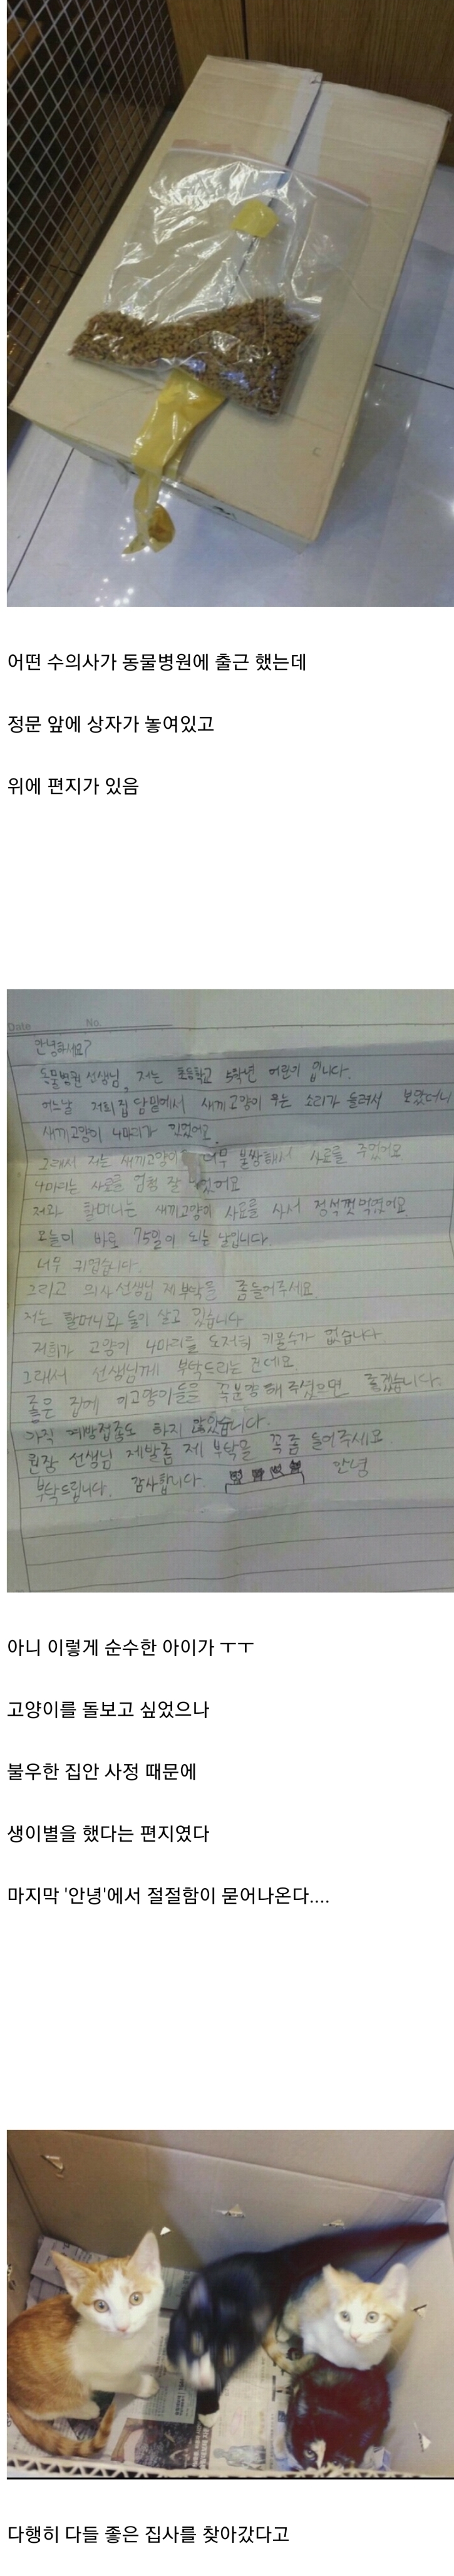 어떤 수의사가 동물병원에 출근 했는데
정문 앞에 상자가 놓여있고
위에 편지가 있음
Date No.
안녕하세요?
동물병원 선생님, 저는 초등학교 5학년 어린이 입니다.
어느날 저희집 담밑에서 새끼고양이 우는 소리가 들려서 보았더니
새끼고양이 4마리가 있었어요.
그래서 저는 새끼고양이 너무 불쌍해서 사료를 주었어요
4마리는 사료를 엄청 잘 먹었어요
저와 할머니는 새끼고양이 사료를 사서 정성껏 먹였어요.
오늘이 바로 75일이 되는 날입니다.
너무 귀엽습니다.
그리고 의사선생님 제 부탁을 좀들어주세요
저는 할머니와 둘이 살고 있습니다
저희가 고양이 4마리를 도저히 키울수가 없습니다.
그래서 선생님께 부탁드리는 건데요.
좋은 집에 이고양이들을 꼭분양해주셨으면 좋겠습니다.
아직 예방접종도 하지 않았습니다.
원장 선생님 제발좀 제 부탁을 꼭좀 들어주세요
부탁드립니다. 감사합니다. 안녕
아니 이렇게 순수한 아이가 ㅜㅜ
고양이를 돌보고 싶었으나
불우한 집안 사정 때문에
생이별을 했다는 편지였다
마지막 '안녕'에서 절절함이 묻어나온다....
다행히 다들 좋은 집사를 찾아갔다고